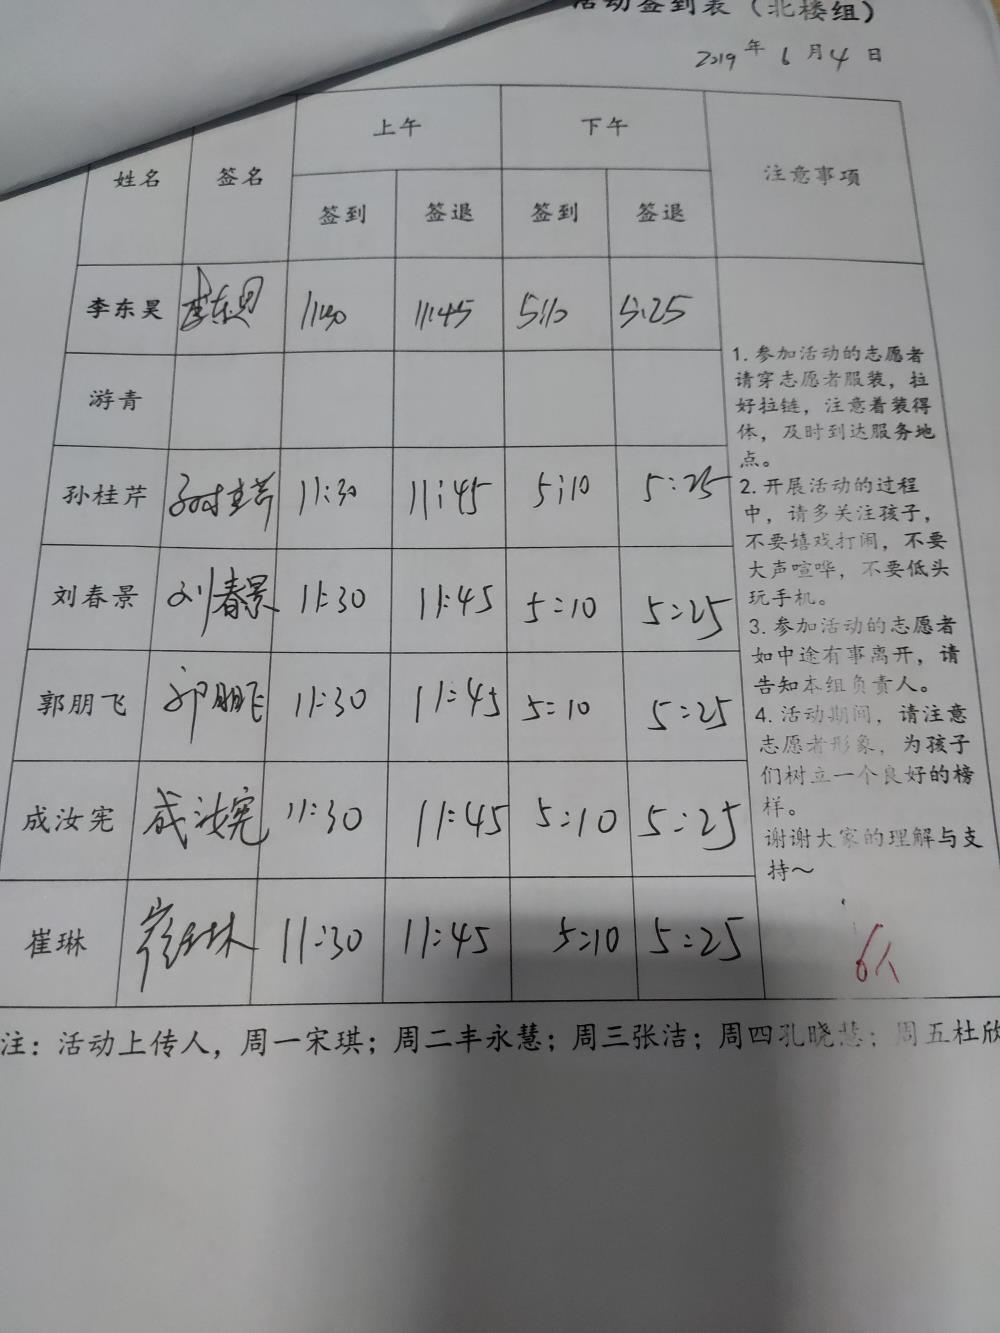 活动签到表（北楼组）
2019年6月4日
姓名 签名 上午 下午 注意事项
签到 签退 签到 签退
李东昊 李东昊 11:30 11:45 5:10 5:25
游青
孙桂芹 孙桂芹 11:30 11:45 5:10 5:25
刘春景 刘春景 11:30 11:45 5:10 5:25
郭朋飞 郭朋飞 11:30 11:45 5:10 5:25
成汝宪 成汝宪 11:30 11:45 5:10 5:25
崔琳 崔琳 11:30 11:45 5:10 5:25
1.参加活动的志愿者
请穿志愿者服装，拉
好拉链，注意着装得
体，及时到达服务地
点。
2.开展活动的过程
中，请多关注孩子，
不要嬉戏打闹，不要
大声喧哗，不要低头
玩手机。
3.参加活动的志愿者
如中途有事离开，请
告知本组负责人。
4.活动期间，请注意
志愿者形象，为孩子
们树立一个良好的榜
样。
谢谢大家的理解与支
持～
6人
注：活动上传人，周一宋琪；周二丰永慧；周三张洁；周四孔晓慧；周五杜欣